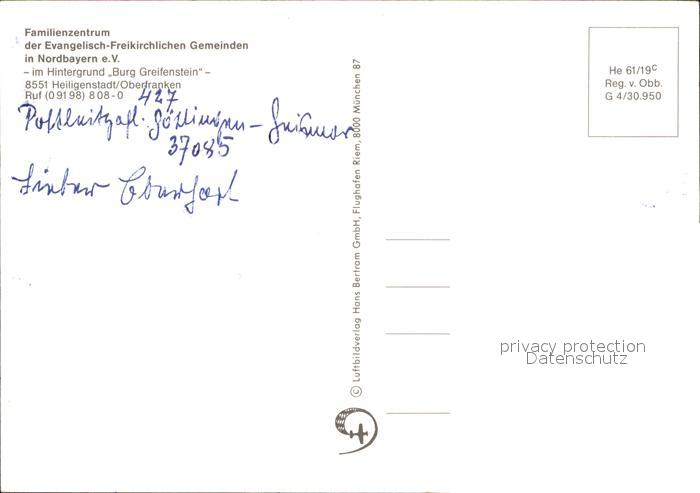 Familienzentrum
der Evangelisch-Freikirchlichen Gemeinden
in Nordbayern e.V.
– im Hintergrund „Burg Greifenstein“ –
8551 Heiligenstadt/Oberfranken
Ruf (0 91 98) 8 08 - 0
427
Postleitzahl: Göttingen – Geismar
37085
Lieber Eberhard
© Luftbildverlag Hans Bertram GmbH, Flughafen Riem, 8000 München 87
He 61/19c
Reg. v. Obb.
G 4/30.950
privacy protection
Datenschutz